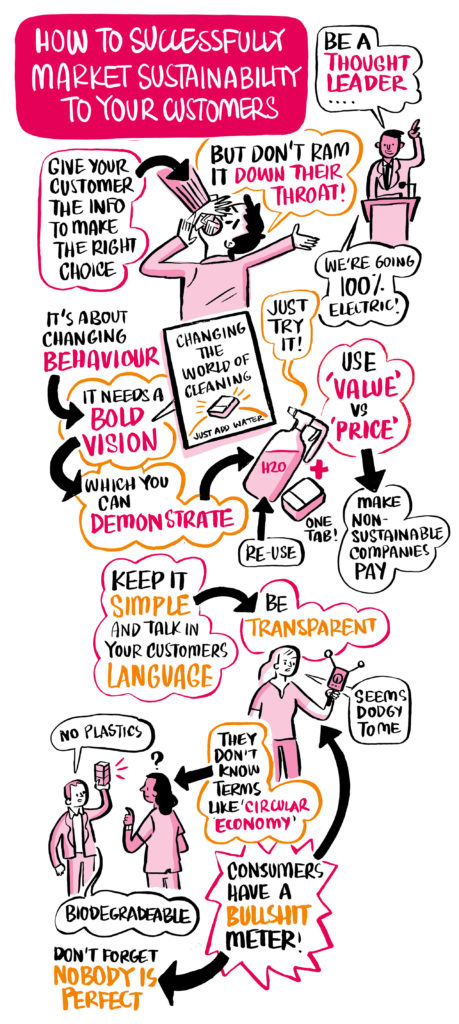 HOW TO SUCCESSFULLY
MARKET SUSTAINABILITY
TO YOUR CUSTOMERS
BE A
THOUGHT
LEADER
....
GIVE YOUR
CUSTOMER
THE INFO
TO MAKE
THE RIGHT
CHOICE
BUT DON'T RAM
IT DOWN THEIR
THROAT!
WE'RE GOING
100%
ELECTRIC!
IT'S ABOUT
CHANGING
BEHAVIOUR
CHANGING
THE
WORLD OF
CLEANING
JUST ADD WATER
JUST
TRY
IT!
USE
'VALUE'
VS
'PRICE'
IT NEEDS A
BOLD
VISION
WHICH YOU
CAN
DEMONSTRATE
H2O
+
ONE
TAB!
RE-USE
MAKE
NON-
SUSTAINABLE
COMPANIES
PAY
KEEP IT
SIMPLE
AND TALK IN
YOUR CUSTOMERS
LANGUAGE
BE
TRANSPARENT
SEEMS
DODGY
TO ME
NO PLASTICS
?
THEY
DON'T
KNOW
TERMS
LIKE 'CIRCULAR
ECONOMY'
BIODEGRADEABLE
CONSUMERS
HAVE A
BULLSHIT
METER!
DON'T FORGET
NOBODY IS
PERFECT